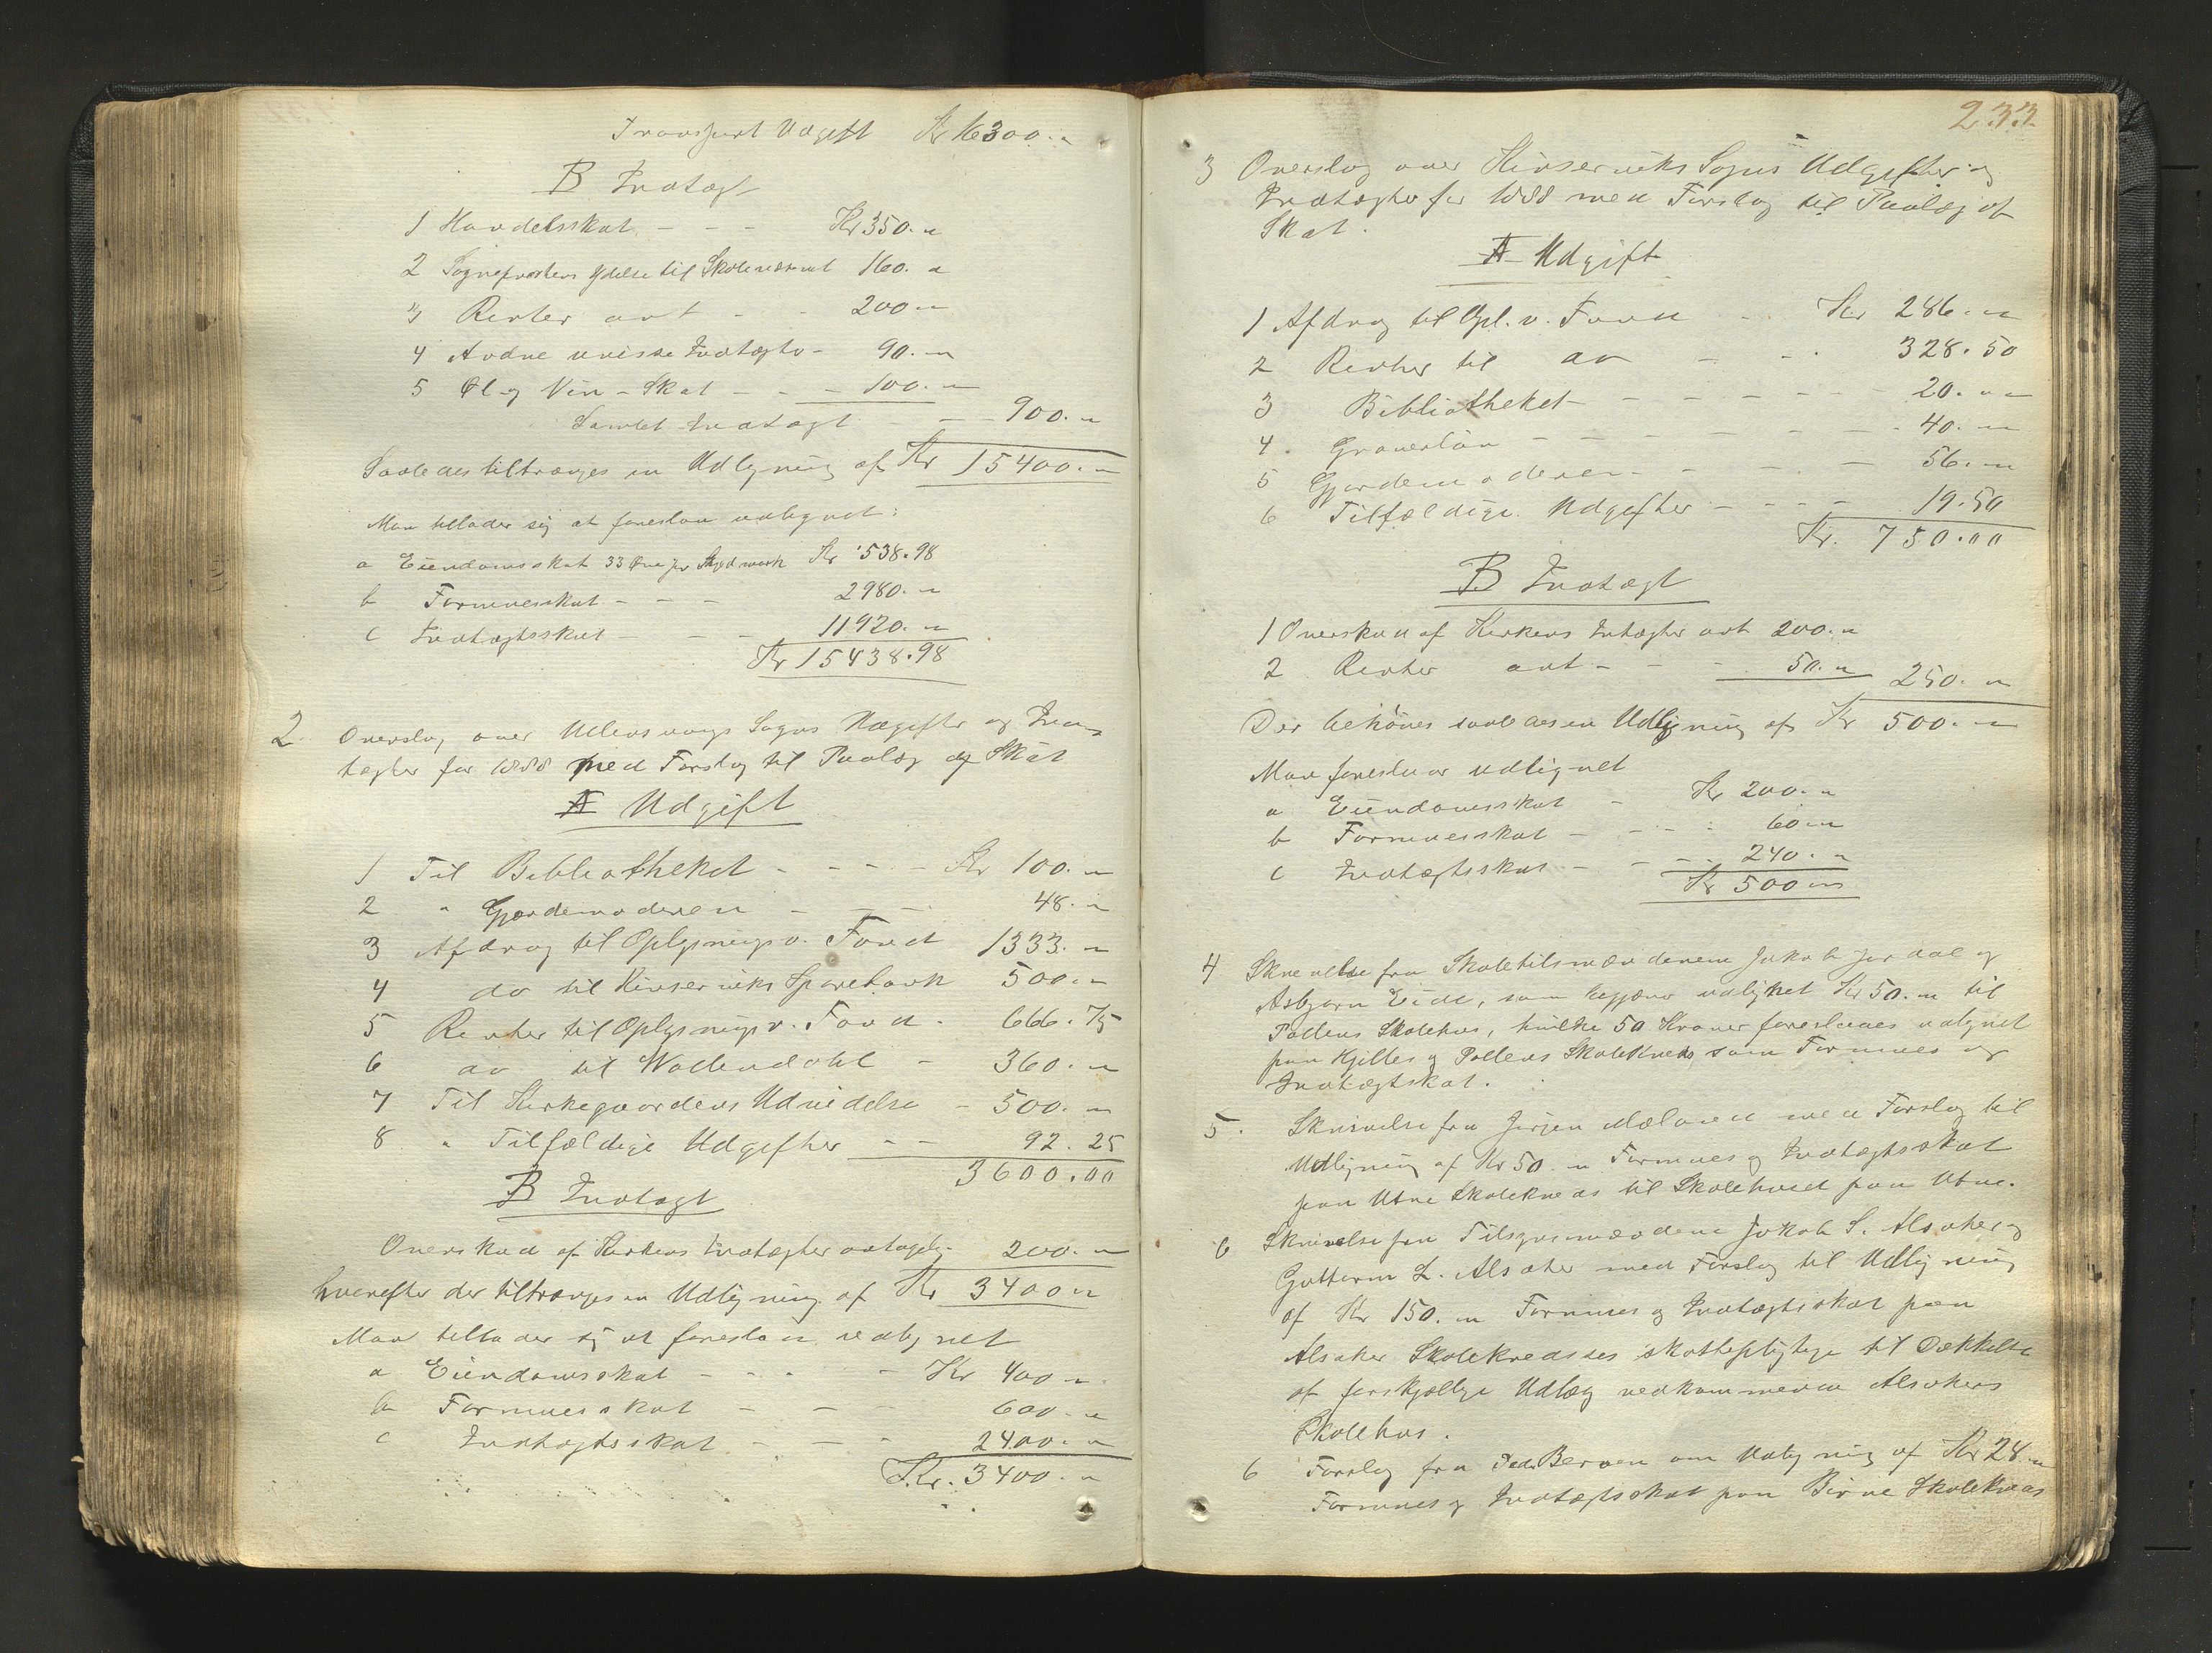 Transport Udgift Kr 16300.„
B Indtægt
1 Handelsskat - - - Kr 350.„
2 Sognepræstens Ydelse til Skolevæsenet 160.„
3 Renter ant - - 200 „
4 Andre uvisse Indtægter - 90.„
5 Øl og Vin-Skat - - - 100.„
Samlet Indtægt - - - 900.„
Saaledes tiltrænges en Udligning af Kr 15400.„
Man tillader sig at foreslaa udlignet:
a Eiendomsskat 33 Øre pr Skyldmark Kr 538.98
b Formuesskat - - - 2980.„
c Indtægtsskat - - - 11920.„
Kr 15438.98
2. Overslag over Ullensvangs Sogns Udgifter og Ind-
tægter for 1888 med Forslag til Paalæg af Skat
A Udgift
1 Til Bibliotheket - - - - Kr 100.„
2 " Gjordemoderen - - - 48.„
3 Afdrag til Oplysningsv. Fond 1333.„
4 do til Kinserviks Sparebank 500.„
5 Renter til Oplysningsv. Fond - 666.75
6 do til Wallendahl - 360.„
7 Til Kirkegaardens Udvidelse - 500.„
8 " Tilfældige Udgifter - - 92.25
3600.00
B Indtægt
Overskud af Kirkens Indtægter antagelig 200.„
hvorefter der tiltrænges en Udligning af Kr 3400 „
Man tillader sig at foreslaa udlignet
a Eiendomsskat - - - - Kr 400 „
b Formuesskat - - 600.„
c Indtægtsskat - - - 2400.„
Kr. 3400.„
233
3 Overslag over Kinserviks Sogns Udgifter og
Indtægter for 1888 med Forslag til Paalæg af
Skat.
A Udgift
1 Afdrag til Opl. v. Fond - - Kr 286.„
2 Renter til do - - - 328.50
3 Bibliotheket - - - - - - 20.„
4. Graverløn - - - - - - - 40.„
5 Gjordemoderen - - - - 56.„
6 Tilfældige Udgifter - - - - 19.50
Kr. 750.00
B Indtægt
1 Overskud af Kirkens Indtægter ant 200.„
2 Renter ant - - - 50.„ 250.„
Der behöves saaledes en Udligning af Kr 500.„
Man foreslaar udlignet
a Eiendomsskat - Kr 200.„
b Formuesskat - - - - 60 „
c Indtægtsskat - - - 240.„
Kr 500 „
4 Skrivelse fra Skoletilsmændenem Jakob Jordal og
Asbjørn Eide, som begjærer udlignet Kr 50.„ til
Pollens Skolehus, hvilke 50 Kroner foreslaaes udlignet
paa Hjelles og Pollens Skolekreds som Formues og
Indtægtskat.
5. Skrivelse fra Jørgen Mæland med Forslag til
Udligning af Kr 50 „ Formues og Indtægtsskat
paa Utne Skolekreds til Skolehuset paa Utne.
6 Skrivelse fra Tilsynsmændene Jakob S. Alsaker og
Guttorm L. Alsaker med Forslag til Udligning
af Kr 150.„ Formues og Indtægtsskat paa
Alsaker Skolekredses skattepligtige til Dækkelse
af forskjellige Udlæg vedkommende Alsakers
Skolehus.
6 Forslag fra Peder Berven om Udligning af Kr 28 „
Formues og Indtægtsskat paa Birve Skolekreds